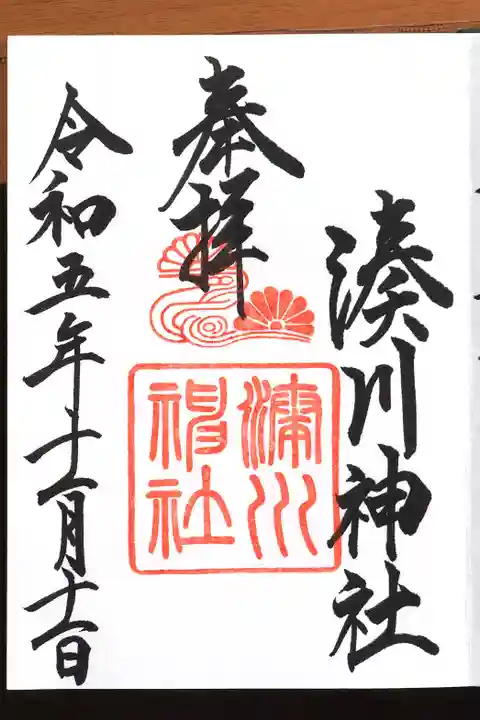 湊川神社
奉拝
湊川
神社
令和五年十一月十一日